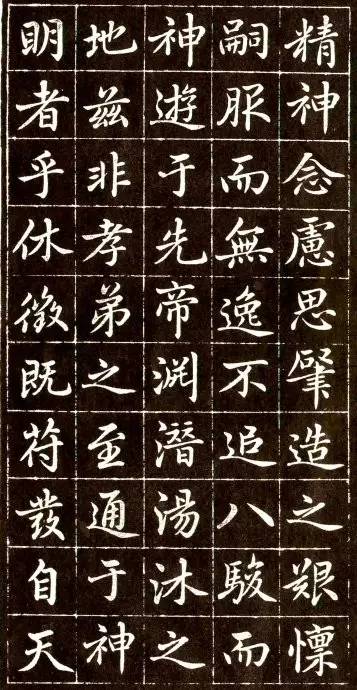 精神念慮思肇造之艱懍
嗣服而無逸不追八駿而
神遊于先帝渊潛湯沐之
地茲非孝弟之至通于神
眀者乎休徵既苻發自天